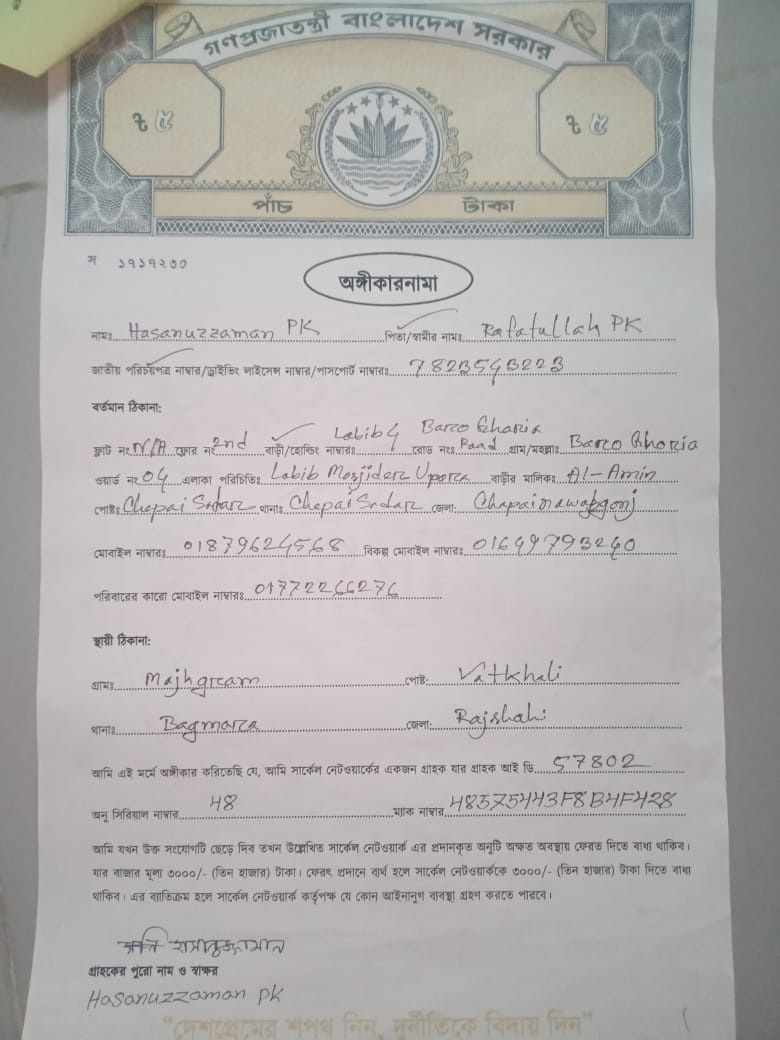 গণপ্রজাতন্ত্রী বাংলাদেশ সরকার
৳ ৫ ৳ ৫
পাঁচ টাকা
স ১৭১৭২৩০
অঙ্গীকারনামা
নামঃ Hasanuzzaman PK পিতা/স্বামীর নামঃ Rafatullah PK
জাতীয় পরিচয়পত্র নাম্বার/ড্রাইভিং লাইসেন্স নাম্বার/পাসপোর্ট নাম্বারঃ 7823543223
বর্তমান ঠিকানা:
ফ্লাট নং N/A ফ্লোর নং 2nd বাড়ী/হোল্ডিং নাম্বারঃ Labib 4 Baroo Gharia রোড নংঃ Road গ্রাম/মহল্লাঃ Baroo Ghoria
ওয়ার্ড নং 04 এলাকা পরিচিতিঃ Labib Mosjider Uporea বাড়ীর মালিকঃ Al-Amin
পোষ্টঃ Chepai Sadar থানাঃ Chepai Sadar জেলা: Chapainawabgonj
মোবাইল নাম্বারঃ 01879624568 বিকল্প মোবাইল নাম্বারঃ 01649793240
পরিবারের কারো মোবাইল নাম্বারঃ 01772266276
স্থায়ী ঠিকানা:
গ্রামঃ Majhgream পোষ্ট: Vatkhali
থানাঃ Bagmara জেলা: Rajshahi
আমি এই মর্মে অঙ্গীকার করিতেছি যে, আমি সার্কেল নেটওয়ার্কের একজন গ্রাহক যার গ্রাহক আই ডি 57802
অনু সিরিয়াল নাম্বার 48 ম্যাক নাম্বার 48575443F8B4F428
আমি যখন উক্ত সংযোগটি ছেড়ে দিব তখন উল্লেখিত সার্কেল নেটওয়ার্ক এর প্রদানকৃত অনুটি অক্ষত অবস্থায় ফেরত দিতে বাধ্য থাকিব।
যার বাজার মূল্য ৩০০০/- (তিন হাজার) টাকা। ফেরৎ প্রদানে ব্যর্থ হলে সার্কেল নেটওয়ার্ককে ৩০০০/- (তিন হাজার) টাকা দিতে বাধ্য
থাকিব। এর ব্যতিক্রম হলে সার্কেল নেটওয়ার্ক কর্তৃপক্ষ যে কোন আইনানুগ ব্যবস্থা গ্রহণ করতে পারবে।
গ্রাহকের পুরো নাম ও স্বাক্ষর
Hasanuzzaman PK
"দেশপ্রেমের শপথ নিন, দুর্নীতিকে বিদায় দিন"